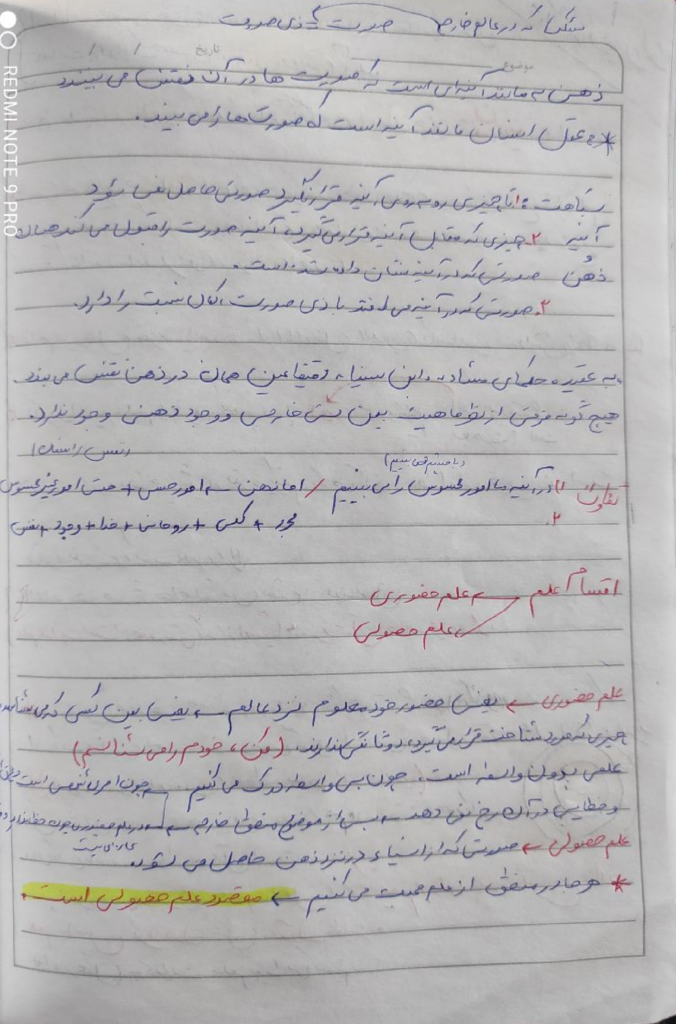 که در عالم خارج صورت ذی صورت
موضوع تاریخ / /
ذهن ← مانند آینه‌ای است که صورت‌ها در آن نقش می‌بندد
* عقل انسان مانند آینه است که صورت‌ها را می‌بیند.
شباهت: ۱. تا چیزی روبه‌روی آینه قرار نگیرد صورتی حاصل نمی‌شود
آینه ۲. چیزی که مقابل آینه قرار می‌گیرد، آینه صورت را قبول می‌کند همان
ذهن صورتی که در آینه نشان داده شده است.
۳. صورتی که در آینه می‌افتد با ذی صورت، کمال نسبت را دارد.
به عقیده حکمای مشاء و ابن سینا، دقیقا عین همان در ذهن نقش می‌بندد
هیچ گونه فرقی از نظر ماهیت بین شی خارجی و وجود ذهنی وجود ندارد.
تفاوت ۱. در آینه ما امور محسوس را می‌بینیم / اما ذهن ← امور حسی + حتی امور غیر محسوس
۲. مجرد + کلی + روحانی + خدا + وجود + نفس
اقسام علم ← علم حضوری
علم حصولی
علم حضوری ← یعنی حضور خود معلوم نزد عالم ← یعنی بین کسی که می‌شناسد
چیزی که مورد شناخت قرار می‌گیرد، دوتا شی ندارند. (من، خودم را می‌شناسم)
علمی بدون واسطه است. چون بی واسطه درک می‌کنیم چون امر است
و خطایی در آن رخ نمی‌دهد ← پس از موضوع منطق خارجه ← در علم حضوری چون خطا
علم حصولی ← صورتی که از اشیاء در نزد ذهن حاصل می‌شود.
* هرجا در منطق از علم صحبت می‌کنیم ← مقصود علم حصولی است.
REDMI NOTE 9 PRO